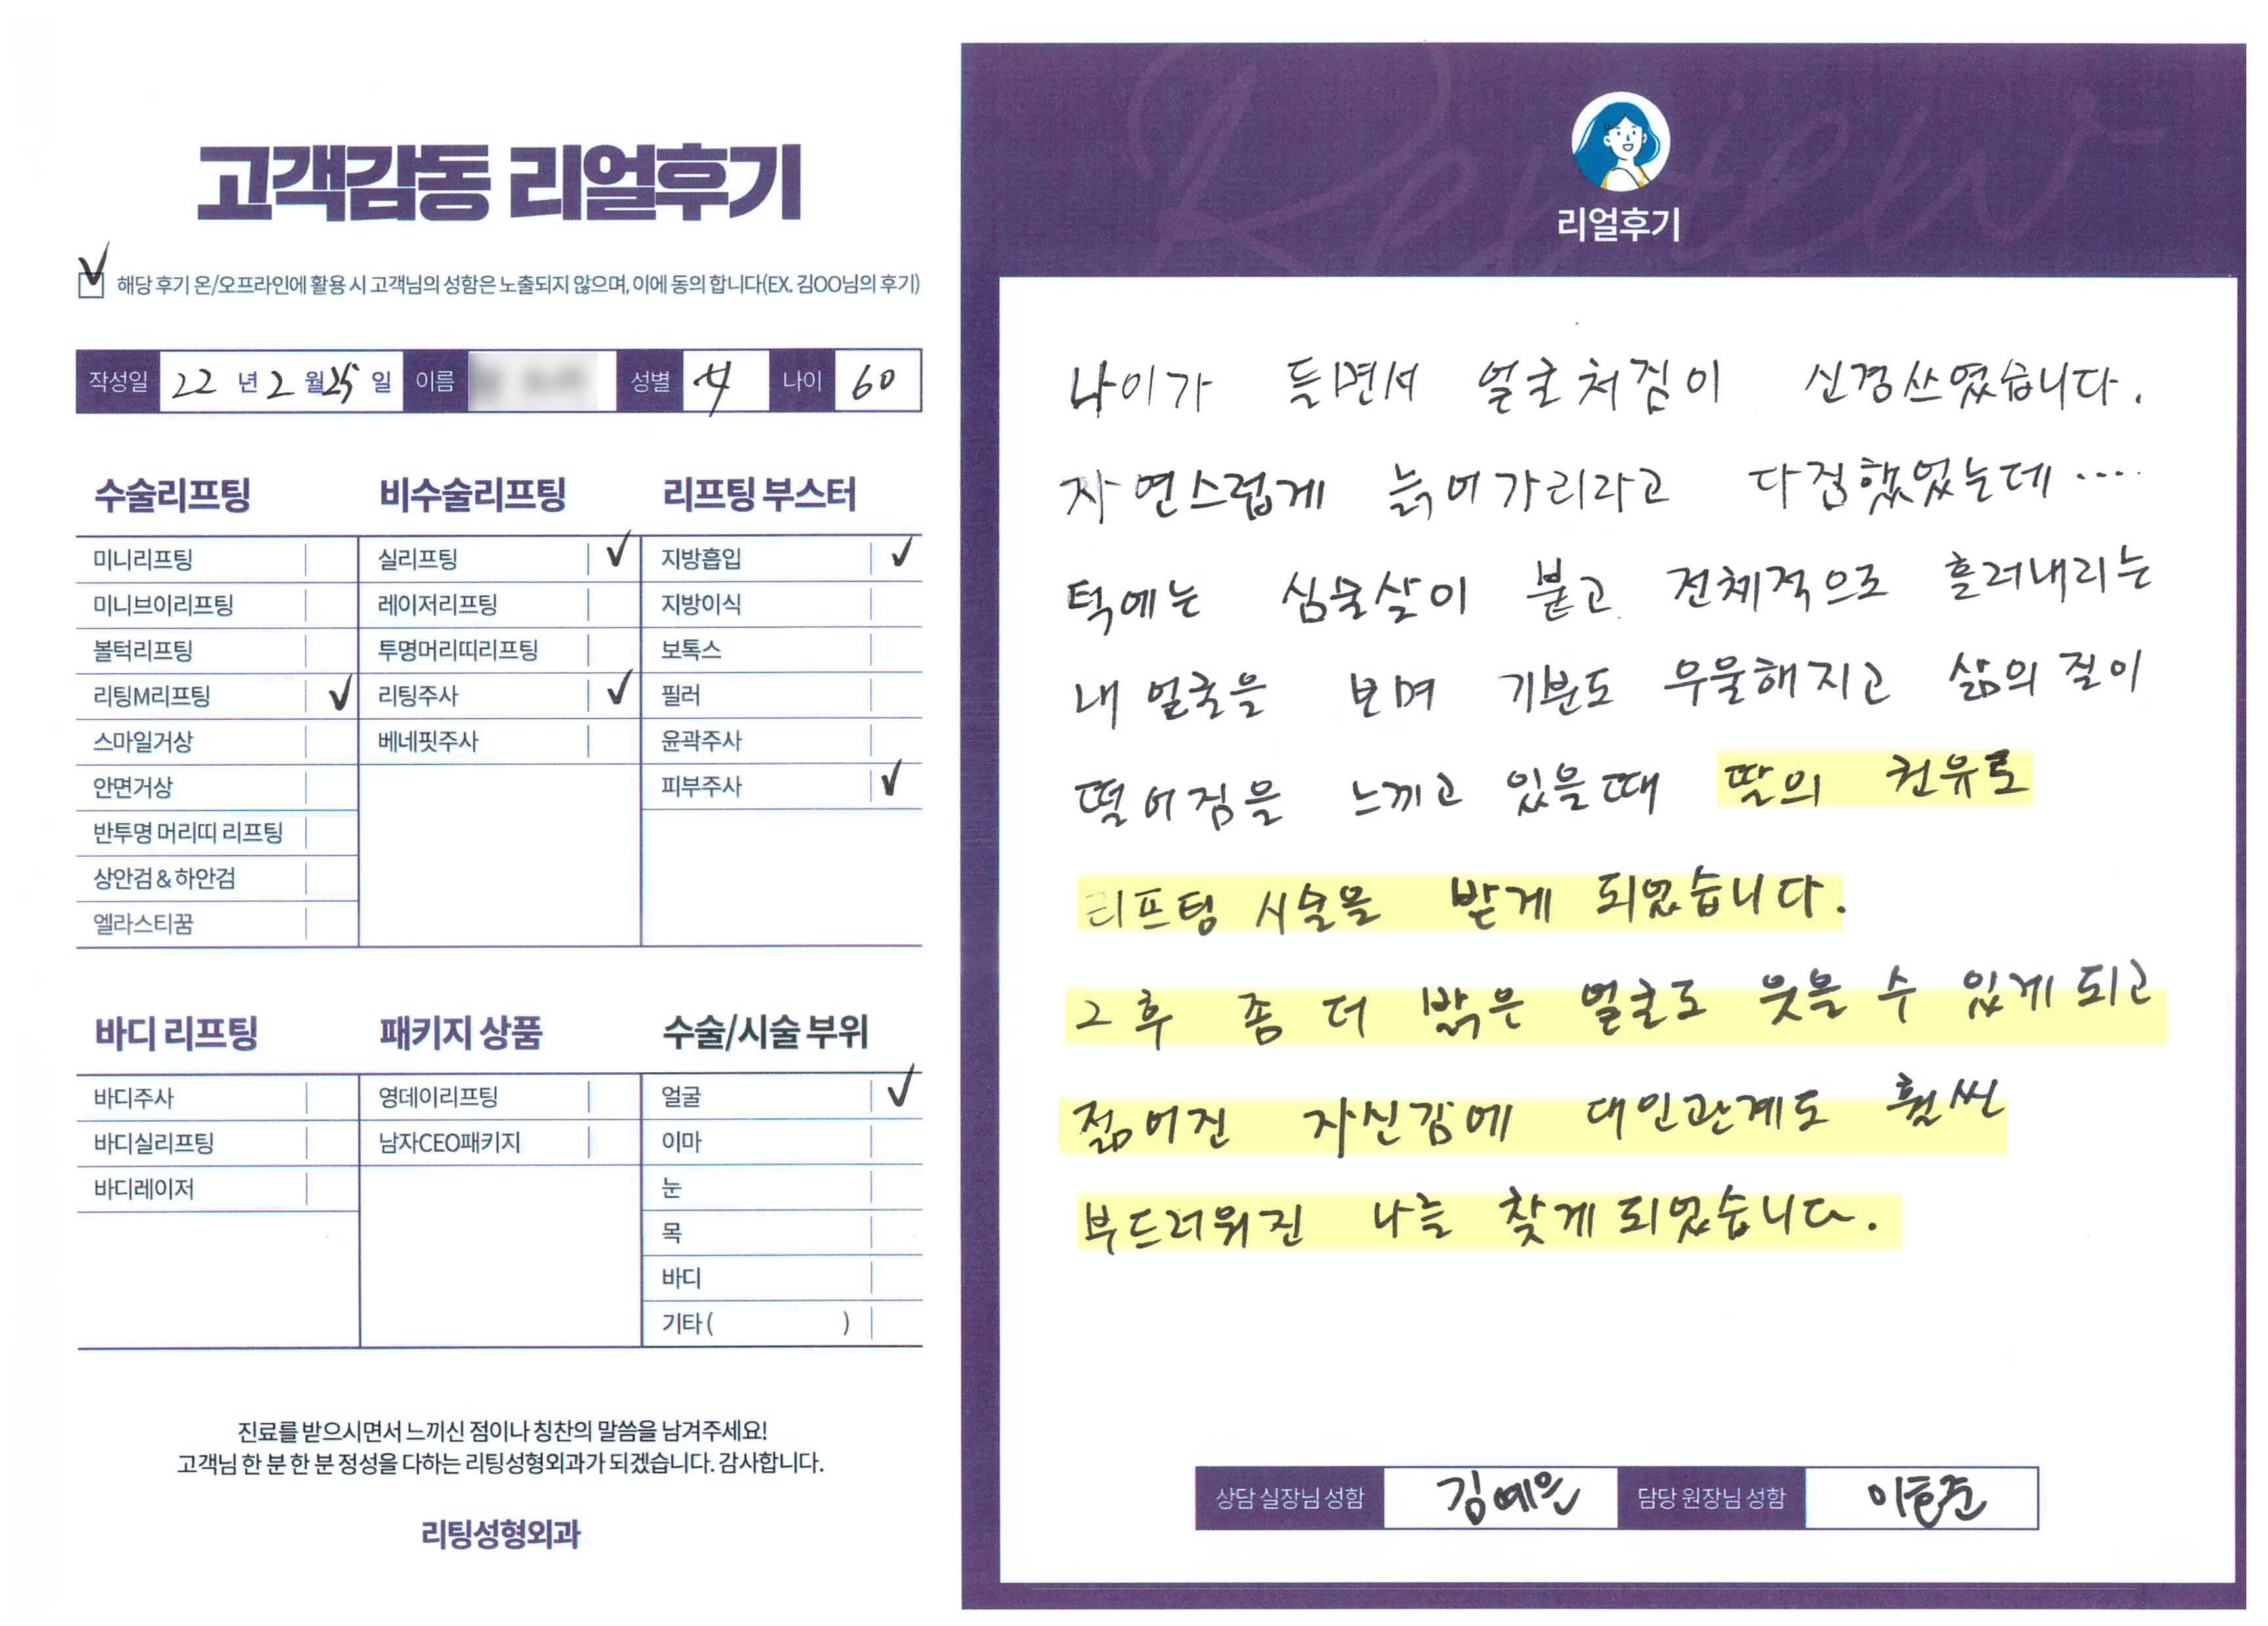 고객감동 리얼후기
해당 후기 온/오프라인에 활용 시 고객님의 성함은 노출되지 않으며, 이에 동의 합니다(EX. 김OO님의 후기)
작성일 22 년 2 월 25 일 이름 성별 여 나이 60
수술리프팅 비수술리프팅 리프팅 부스터
미니리프팅 실리프팅 ✓ 지방흡입 ✓
미니브이리프팅 레이저리프팅 지방이식
볼턱리프팅 투명머리띠리프팅 보톡스
리팅M리프팅 ✓ 리팅주사 ✓ 필러
스마일거상 베네핏주사 윤곽주사
안면거상 피부주사 ✓
반투명 머리띠 리프팅
상안검 & 하안검
엘라스티꿈
바디 리프팅 패키지 상품 수술/시술 부위
바디주사 영데이리프팅 얼굴 ✓
바디실리프팅 남자CEO패키지 이마
바디레이저 눈
목
바디
기타 ( )
진료를 받으시면서 느끼신 점이나 칭찬의 말씀을 남겨주세요!
고객님 한 분 한 분 정성을 다하는 리팅성형외과가 되겠습니다. 감사합니다.
리팅성형외과
Review
리얼후기
나이가 들면서 얼굴처짐이 신경쓰였습니다.
자연스럽게 늙어가리라고 다짐했었는데....
턱에는 심술살이 붙고 전체적으로 흘러내리는
내 얼굴을 보며 기분도 우울해지고 삶의 질이
떨어짐을 느끼고 있을때 딸의 권유로
리프팅 시술을 받게 되었습니다.
그후 좀 더 밝은 얼굴로 웃을 수 있게 되고
젊어진 자신감에 대인관계도 훨씬
부드러워진 나를 찾게 되었습니다.
상담 실장님 성함 김예은 담당 원장님 성함